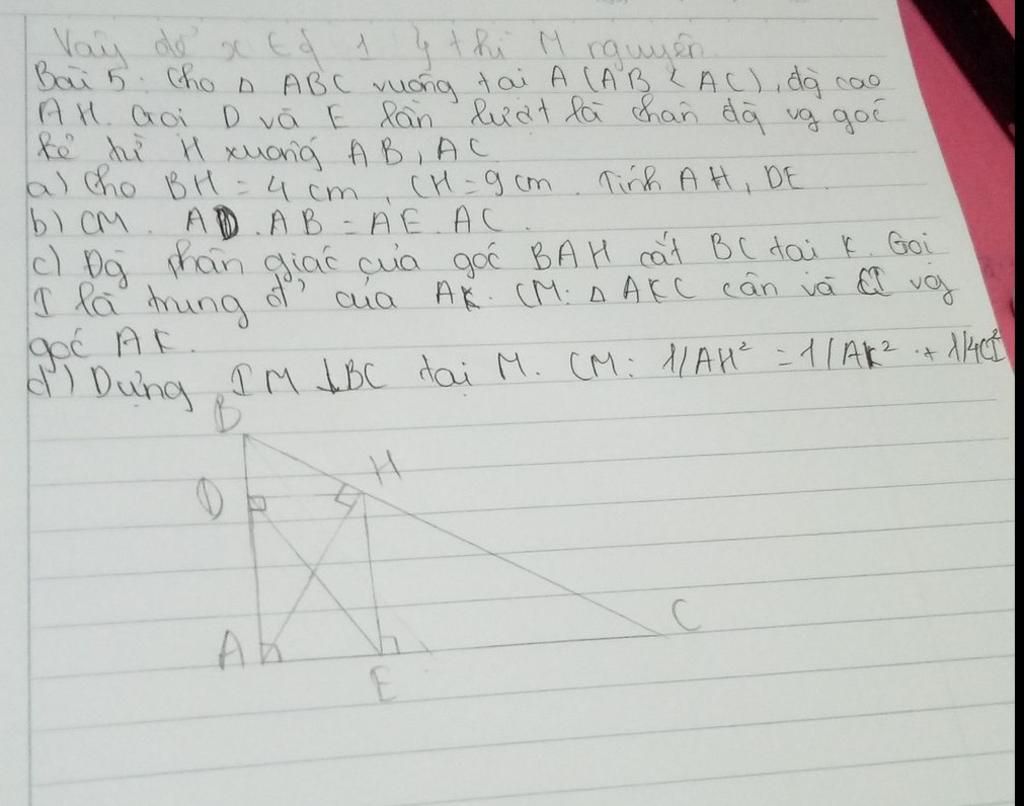 Vậy để x ∈ { 1 4 thì M nguyên
Bài 5: Cho Δ ABC vuông tại A (AB < AC), đg cao
AH. Gọi D và E lần lượt là chân đg vg góc
kẻ từ H xuống AB, AC
a) Cho BH = 4 cm, CH = 9 cm. Tính AH, DE.
b) CM. AD. AB = AE. AC.
c) Đg phân giác của góc BAH cắt BC tại K. Gọi
I là trung đ' của AK. CM: Δ AKC cân và CI vg
góc AK.
d) Dựng IM ⊥ BC tại M. CM: 1/AH² = 1/AK² + 1/4CI²
B
H
D
C
A
E